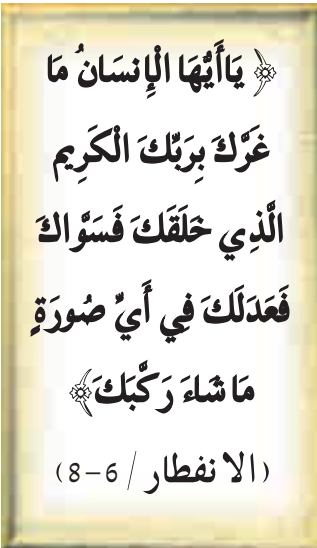 ﴿ يَاأَيُّهَا الْإِنسَانُ مَا
غَرَّكَ بِرَبِّكَ الْكَرِيمِ
الَّذِي خَلَقَكَ فَسَوَّاكَ
فَعَدَلَكَ فِي أَيِّ صُورَةٍ
مَا شَاءَ رَكَّبَكَ﴾
(الانفطار / 6-8)